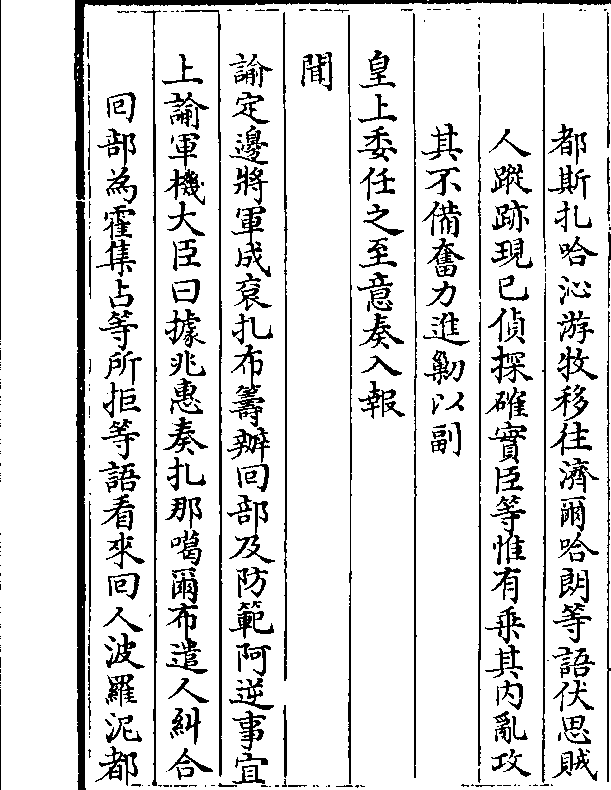 都斯扎哈沁游牧移往濟爾哈朗等語伏思賊
人蹤跡現已偵探確實臣等惟有乗其内亂攻
其不備奮力進勦以副
皇上委任之至意奏入報
聞
諭定邊將軍成袞扎布籌辦回部及防範阿逆事宜
上諭軍機大臣曰據兆惠奏扎那噶爾布遣人糾合
回部為霍集占等所拒等語看來回人波羅泥都